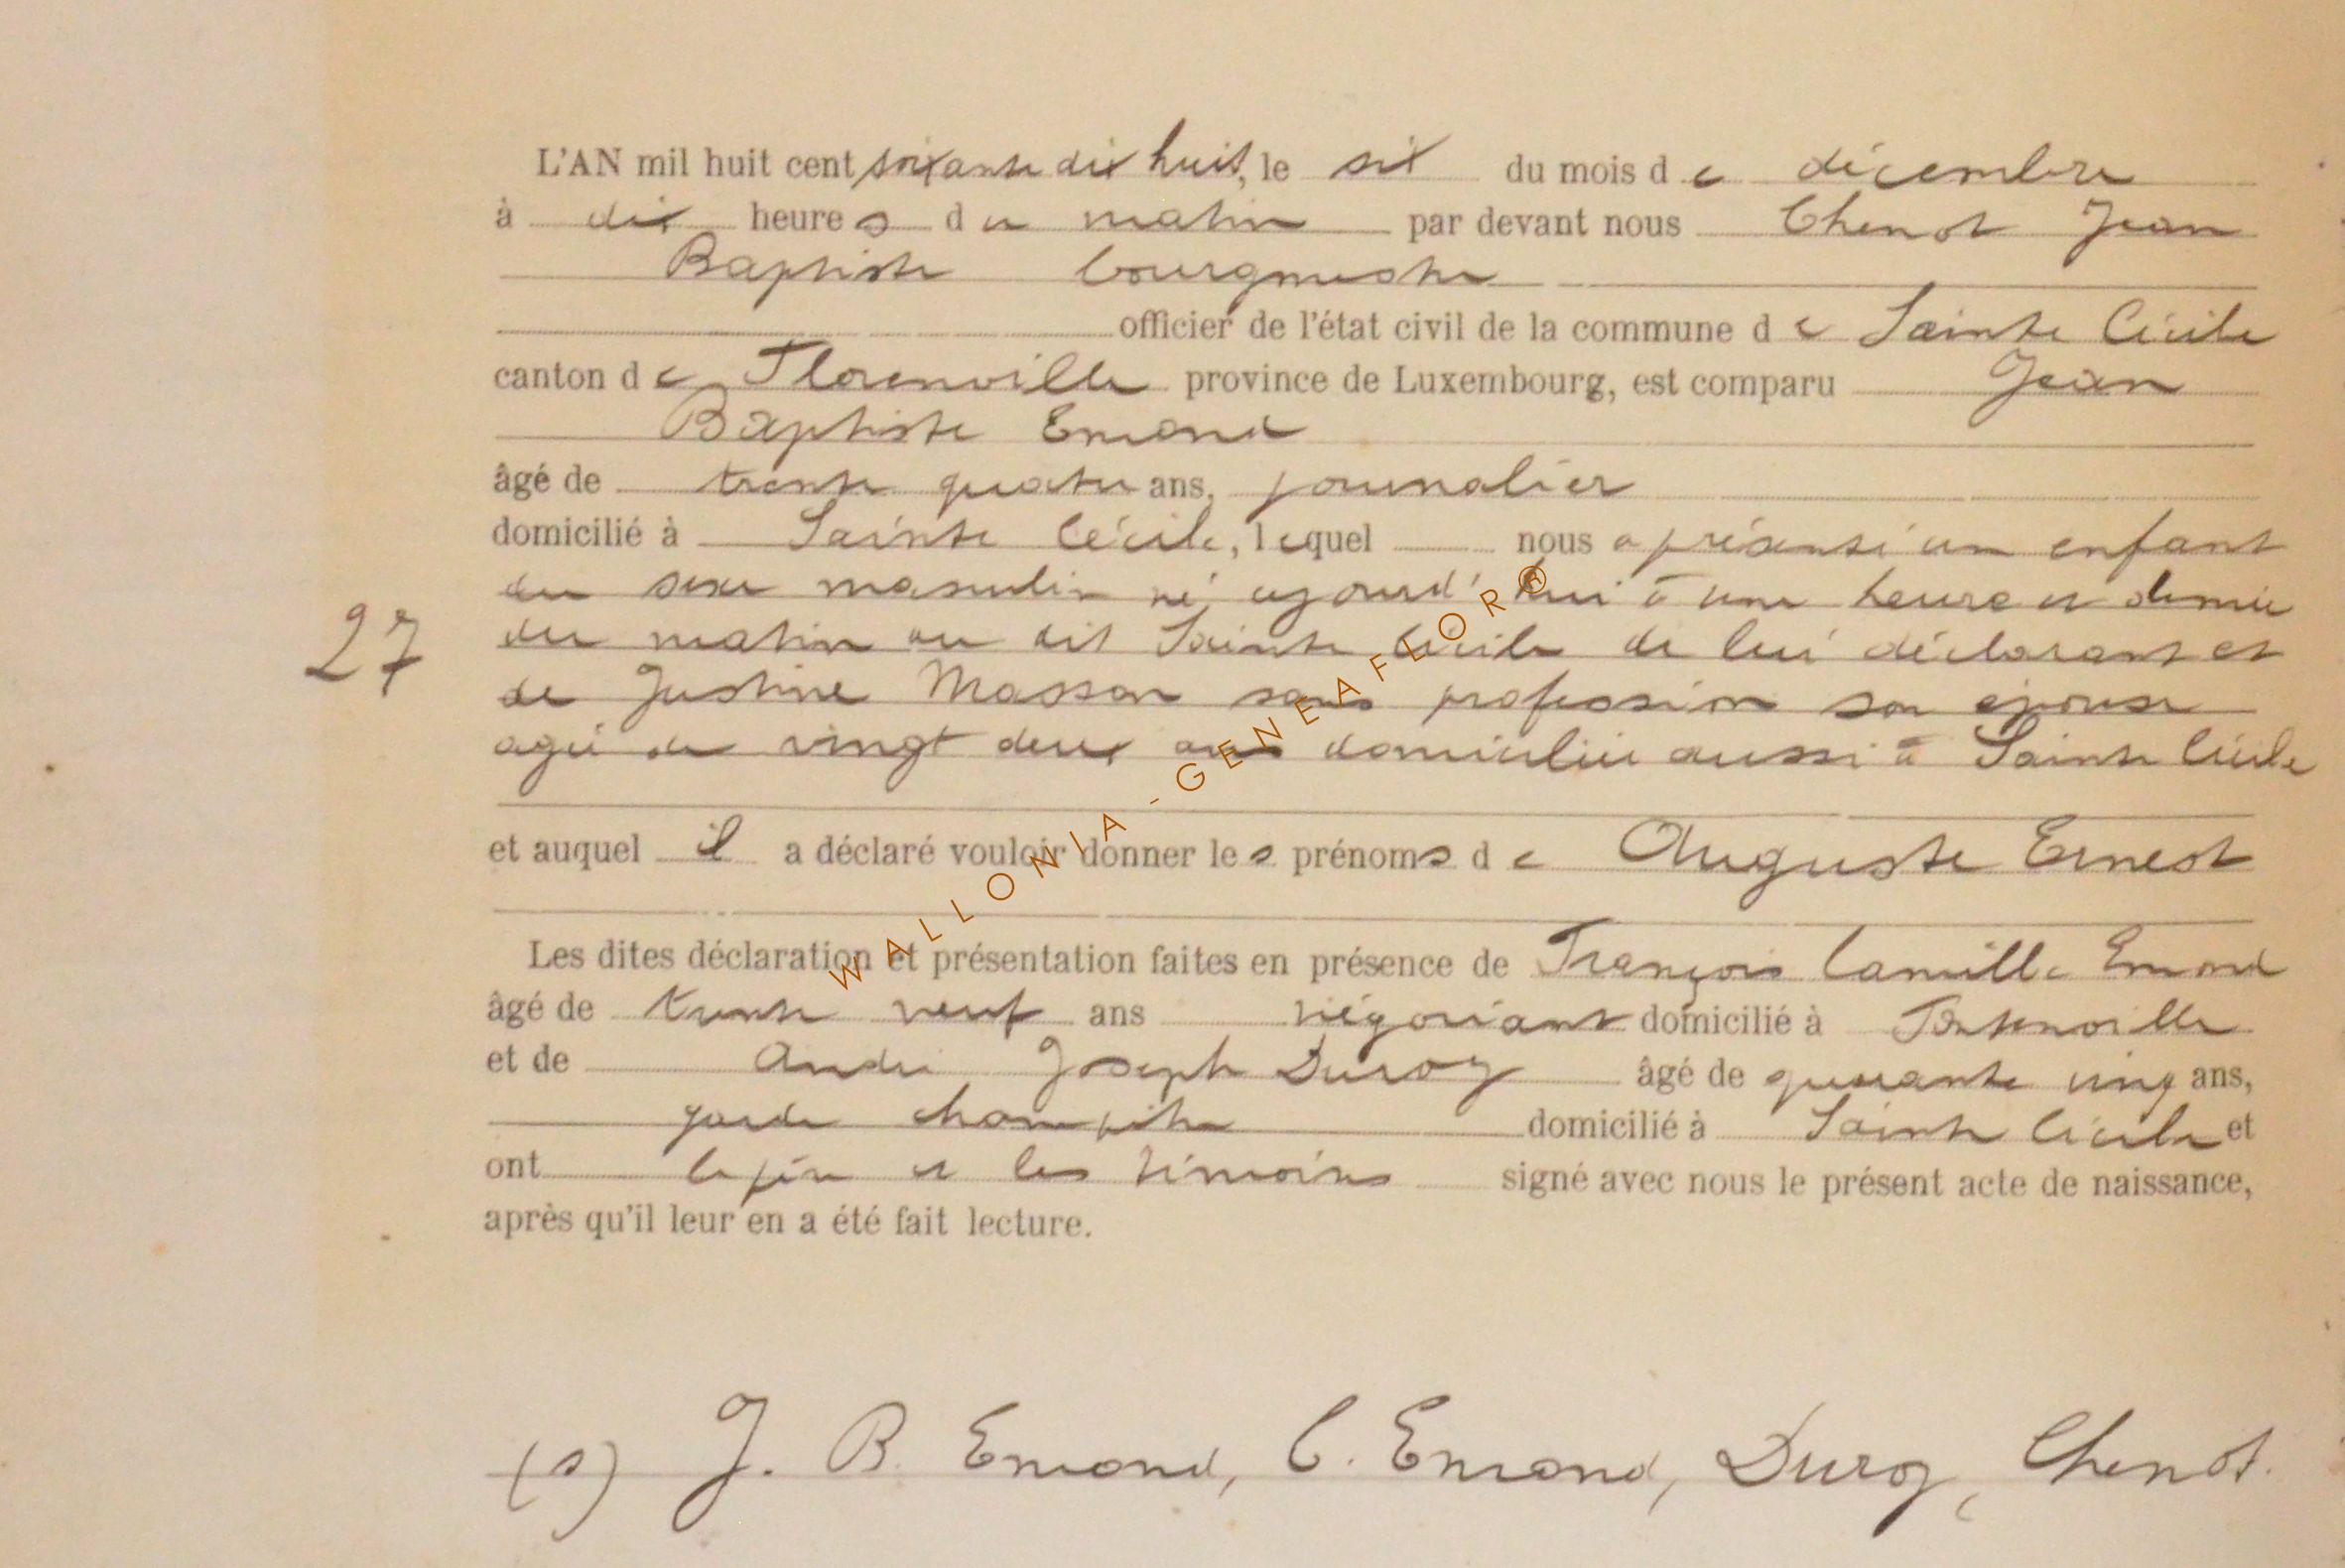 L'AN mil huit cent soixante dix huit, le six du mois de décembre
à dix heures du matin par devant nous Chenot Jean
Baptiste bourgmestre
officier de l'état civil de la commune de Sainte Cécile
canton de Florenville province de Luxembourg, est comparu Jean
Baptiste Emond
âgé de trente quatre ans, journalier
domicilié à Sainte Cécile, lequel nous a présenté un enfant
du sexe masculin né aujourd'hui à une heure et demie
27
du matin au dit Sainte Cécile de lui déclarant et
de Justine Masson sans profession son épouse
agée de vingt deux ans domiciliée aussi à Sainte Cécile
et auquel il a déclaré vouloir donner les prénoms de Auguste Ernest
Les dites déclaration et présentation faites en présence de François Camille Emond
âgé de trente neuf ans négociant domicilié à Fontenoille
et de André Joseph Duroy âgé de quarante cinq ans,
garde champêtre domicilié à Sainte Cécile et
ont le père et les témoins signé avec nous le présent acte de naissance,
après qu'il leur en a été fait lecture.
(s) J. B. Emond, C. Emond, Duroy, Chenot.
WALLONIA - GENEAFLOR®